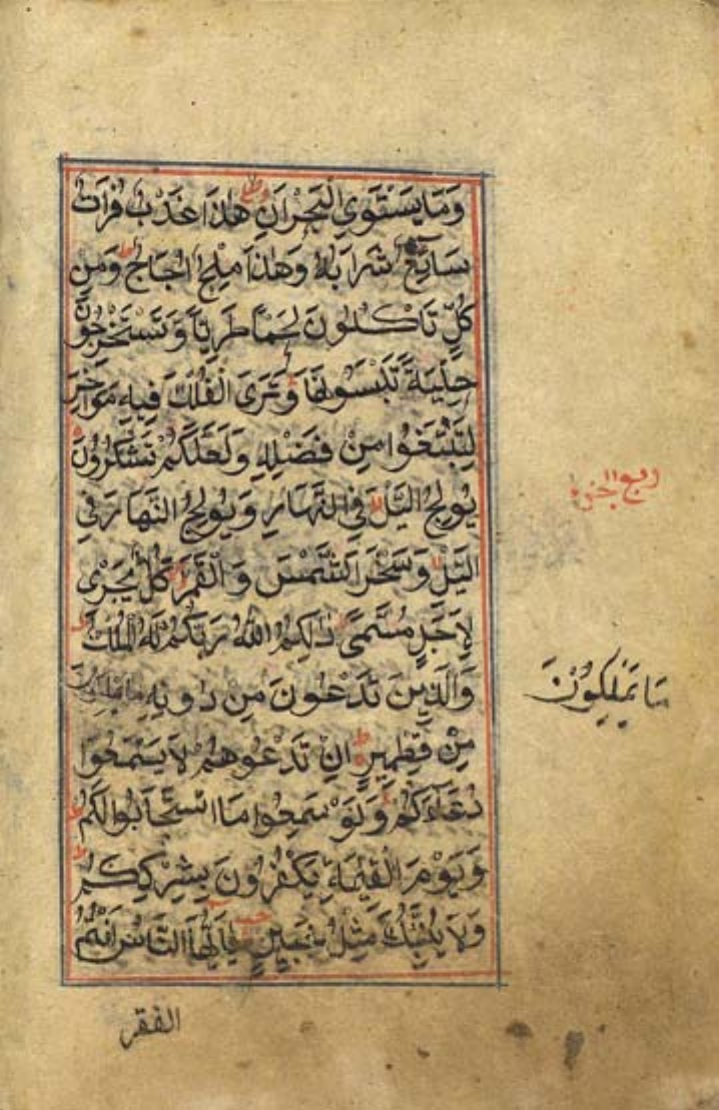 وَمَا يَسْتَوِي الْبَحْرَانِ هٰذَا عَذْبٌ فُرَاتٌ
سَائِغٌ شَرَابُهُ وَهٰذَا مِلْحٌ اُجَاجٌ وَمِنْ
كُلٍّ تَاْكُلُونَ لَحْمًا طَرِيًّا وَتَسْتَخْرِجُونَ
حِلْيَةً تَلْبَسُونَهَا وَتَرَى الْفُلْكَ فِيهِ مَوَاخِرَ
لِتَبْتَغُوا مِنْ فَضْلِهِ وَلَعَلَّكُمْ تَشْكُرُونَ
يُولِجُ الَّيْلَ فِي النَّهَارِ وَيُولِجُ النَّهَارَ فِي
الَّيْلِ وَسَخَّرَ الشَّمْسَ وَالْقَمَرَ كُلٌّ يَجْرِي
لِاَجَلٍ مُسَمًّى ذٰلِكُمُ اللّٰهُ رَبُّكُمْ لَهُ الْمُلْكُ
وَالَّذِينَ تَدْعُونَ مِنْ دُونِهِ مَا يَمْلِكُونَ
مِنْ قِطْمِيرٍ اِنْ تَدْعُوهُمْ لَا يَسْمَعُوا
دُعَاءَكُمْ وَلَوْ سَمِعُوا مَا اسْتَجَابُوا لَكُمْ
وَيَوْمَ الْقِيٰمَةِ يَكْفُرُونَ بِشِرْكِكُمْ
وَلَا يُنَبِّئُكَ مِثْلُ خَبِيرٍ يَا اَيُّهَا النَّاسُ اَنْتُمُ
ربع الجزء
مَا يَمْلِكُونَ
الفقر